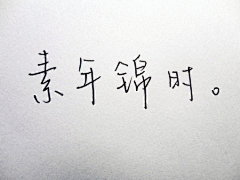 素年锦时。